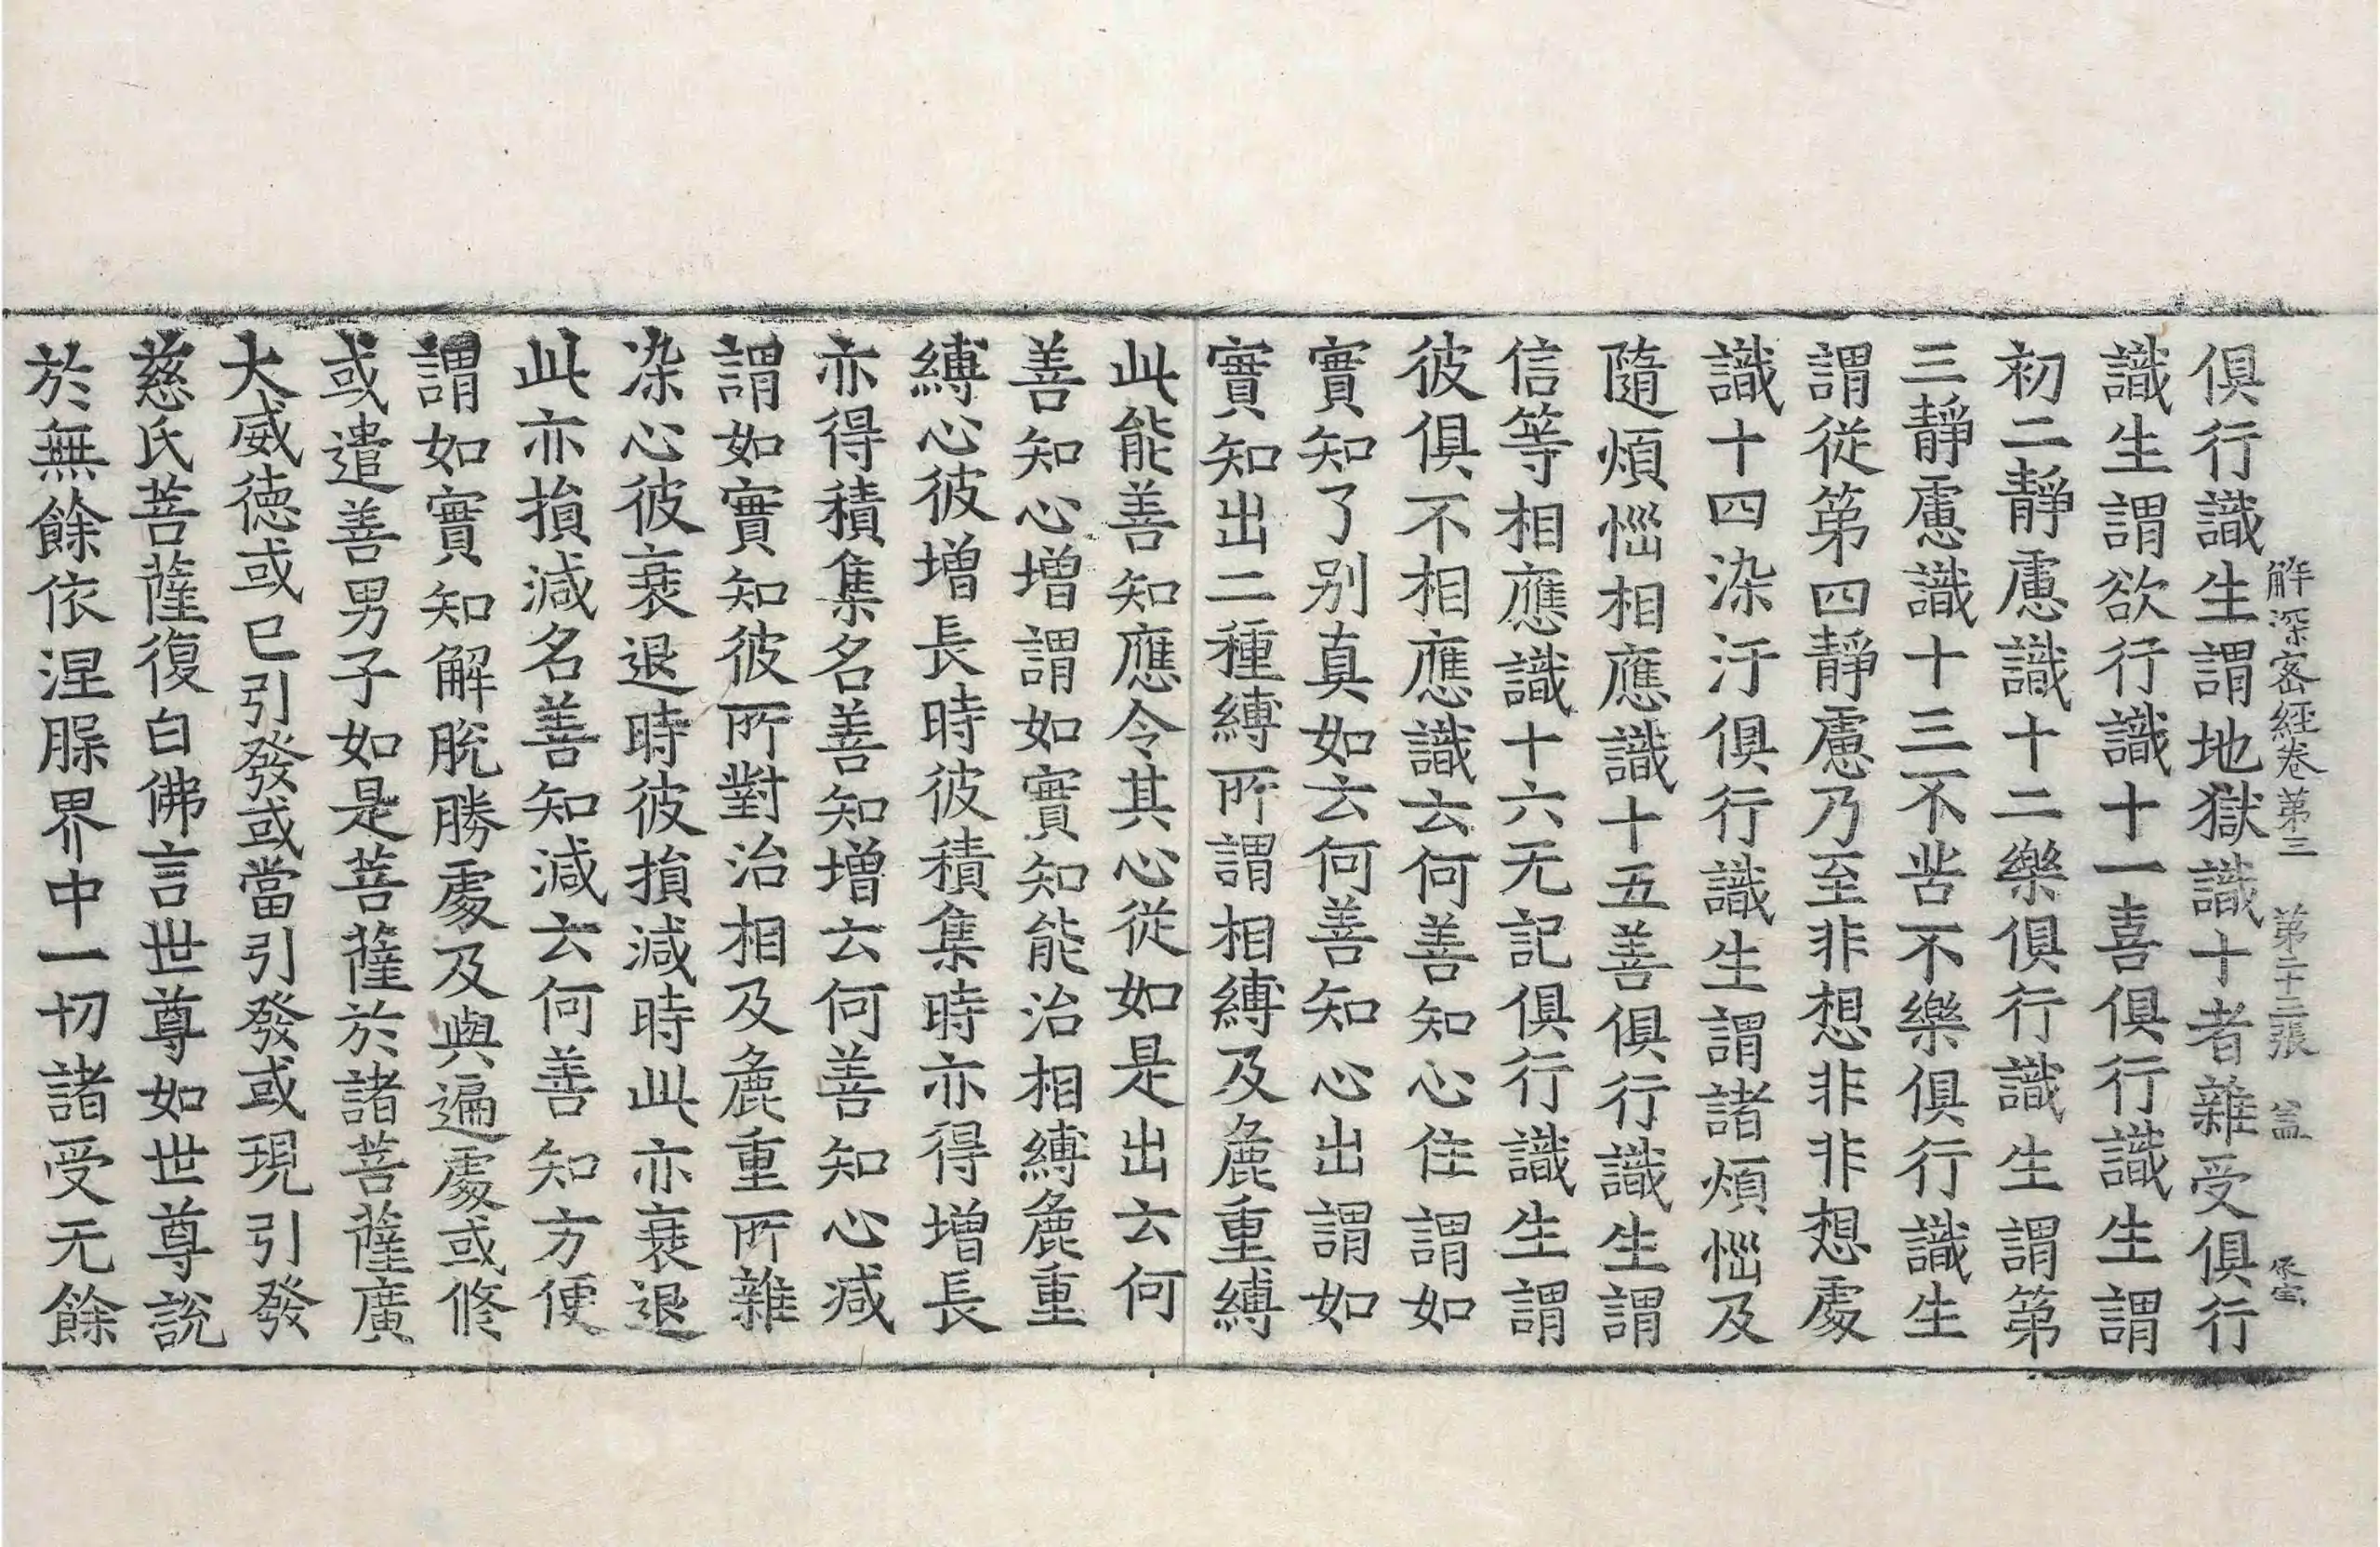 解深密經卷第三 第二十三張 盖
俱行識生謂地獄識十者雜受俱行
識生謂欲行識十一喜俱行識生謂
初二靜慮識十二樂俱行識生謂第
三靜慮識十三不苦不樂俱行識生
謂從第四靜慮乃至非想非非想處
識十四染汙俱行識生謂諸煩惱及
隨煩惱相應識十五善俱行識生謂
信等相應識十六无記俱行識生謂
彼俱不相應識云何善知心住謂如
實知了別真如云何善知心出謂如
實知出二種縛所謂相縛及麁重縛
此能善知應令其心從如是出云何
善知心增謂如實知能治相縛麁重
縛心彼增長時彼積集時亦得增長
亦得積集名善知增云何善知心减
謂如實知彼所對治相及麁重所雜
染心彼衰退時彼損減時此亦衰退
此亦損減名善知減云何善知方便
謂如實知解脫勝處及與遍處或修
或遣善男子如是菩薩於諸菩薩廣
大威德或已引發或當引發或現引發
慈氏菩薩復白佛言世尊如世尊說
於無餘依涅槃界中一切諸受无餘